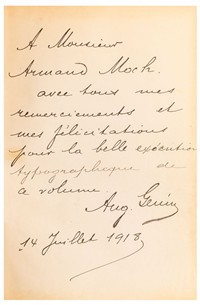 A Monsieur
Armand Moch.
avec tous mes
remerciements et
mes félicitations
pour la belle exécution
typographique de
ce volume.
Aug. Genin
14 Juillet 1913